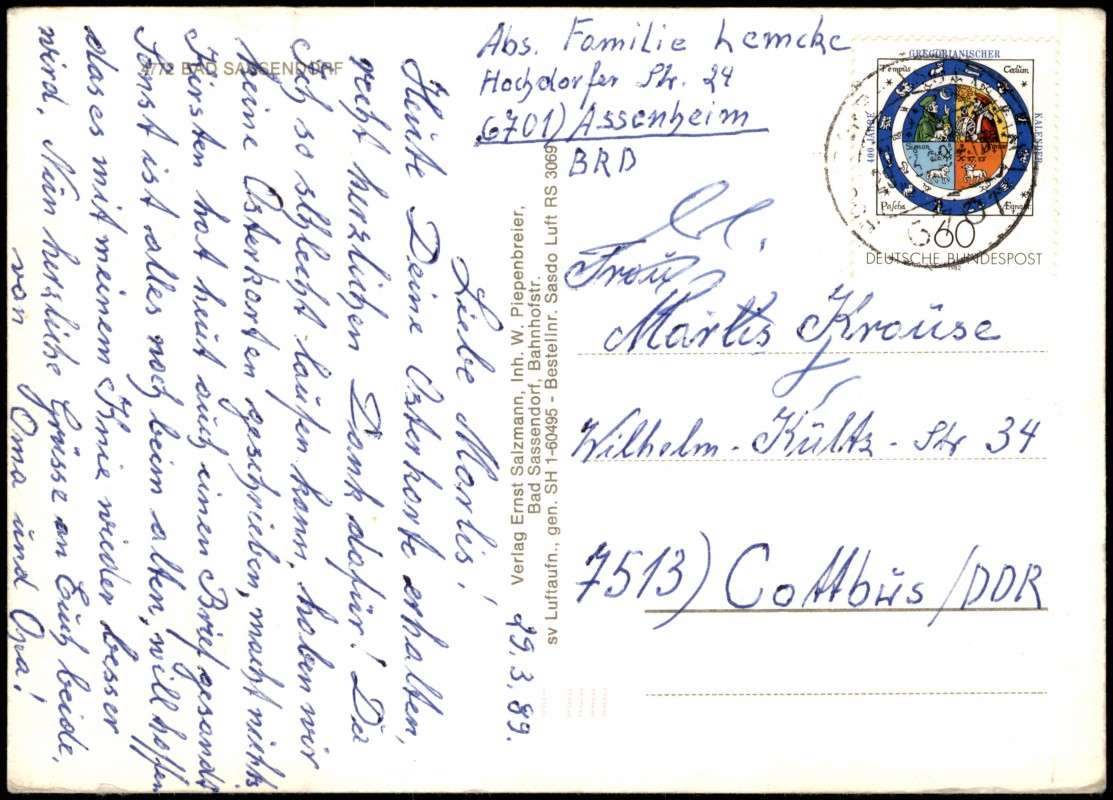 4772 BAD SASSENDORF
29.3.89.
Liebe Marlis!
Heute Deine Osterkarte erhalten,
recht herzlichen Dank dafür! Da
ich so schlecht laufen kann, haben wir
keine Osterkarten geschrieben, macht nichts
Kirsten hat heut auch einen Brief gesandt
Sonst ist alles noch beim alten, will hoffen
das es mit meinem Knie wieder besser
wird. Nun herzliche Grüsse an Euch beide,
von Oma und Opa!
Verlag Ernst Salzmann, Inh. W. Piepenbreier,
Bad Sassendorf, Bahnhofstr.
sv Luftaufn., gen. SH 1-60495 - Bestellnr. Sasdo Luft RS 3069
Abs. Familie Lemcke
Hochdorfer Str. 24
6701) Assenheim
BRD
GREGORIANISCHER
400 JAHRE
KALENDER
Tempus
Cœlum
Pascha
60
DEUTSCHE BUNDESPOST
1982
Frau
Marlis Krause
Wilhelm-Külz-Str 34
7513) Cottbus/DDR